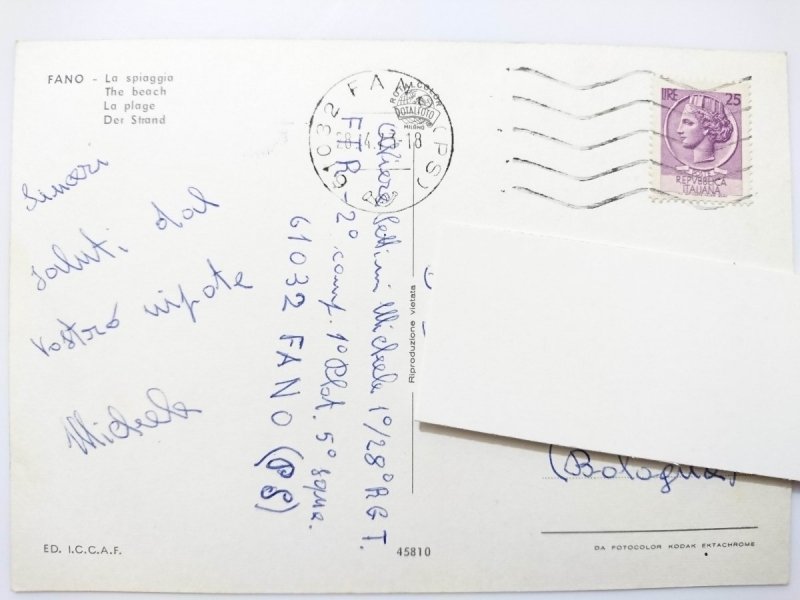 FANO - La spiaggia
The beach
La plage
Der Strand
Sinceri
saluti dal
vostro nipote
Michele
Michele 1°/28° RGT.
FTR - 2° comp. 1° Plot. 5° squa.
61032 FANO (PS)
61032 FANO (PS)
28.4. -18
ROTALCOLOR
ROTALFOTO
MILANO
LIRE 25
REPUBBLICA
ITALIANA
Riproduzione vietata
(Bologna)
ED. I.C.C.A.F.
45810
DA FOTOCOLOR KODAK EKTACHROME